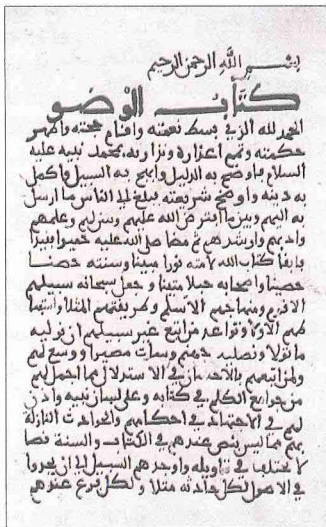 بسم الله الرحمن الرحيم
كتاب الوضو
الحمد لله الذي بسط نعمته واقام حجته واظهر
حكمته وتمم اعذاره ونذارته بمحمد نبيه عليه
السلام واوضح به الدليل وانهج به السبيل واكمل
به دينه واوضح شريعته فبلغ الى الناس ما ارسل
به اليهم وبين ما افترض الله عليهم وسن لهم وعلمهم
وادبهم وارشدهم ثم مضا صلى الله عليه حميدا
كتاب الله لامته نورا مبينا وسنته حصنا
حصينا واصحابه حبلا متينا وجعل سبحانه سبيلهم
الاقوم ومنهاجهم الاسلم وطريقتهم المثلا واتباعهم
الاولا وتواعد من اتبع غير سبيلهم ان نوليه
ما تولا ونصليه جهنم وسات مصيرا ووسع لهم
في الاستدلال مما اجمل لهم
من جوامع الكلم في كتابه وعلى لسان نبيه واذن
لهم في الاجتهاد في احكامهم والحوادث النازلة
بهم مما ليس بنص عندهم في الكتاب والسنة
في تاويله واوجدهم السبيل الى ان يجدوا
في الاصول لكل حادثة مثلا ولكل فرع